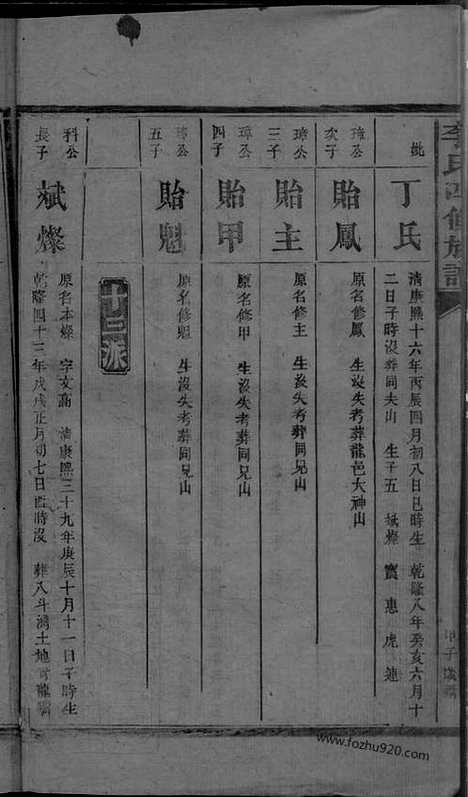 李氏四修族譜
妣
丁氏
清康熙十六年丙辰四月初八日巳時生 乾隆八年癸亥六月十
二日子時沒葬同夫山 生子五 斌燦 寶 惠 虎 連
璋公
次子
貽鳳
原名修鳳 生沒失考葬龍邑大神山
璋公
三子
貽主
原名修主 生沒失考葬同兄山
璋公
四子
貽甲
原名修甲 生沒失考葬同兄山
璋公
五子
貽魁
原名修魁 生沒失考葬同兄山
十三派
科公
長子
斌燦
原名本燦 字文 清康熙三十九年庚辰十月十一日子時生
乾隆四十三年戊戌正月初七日 時沒 葬八斗灣土地
甲子歲
www.fozhu920.com